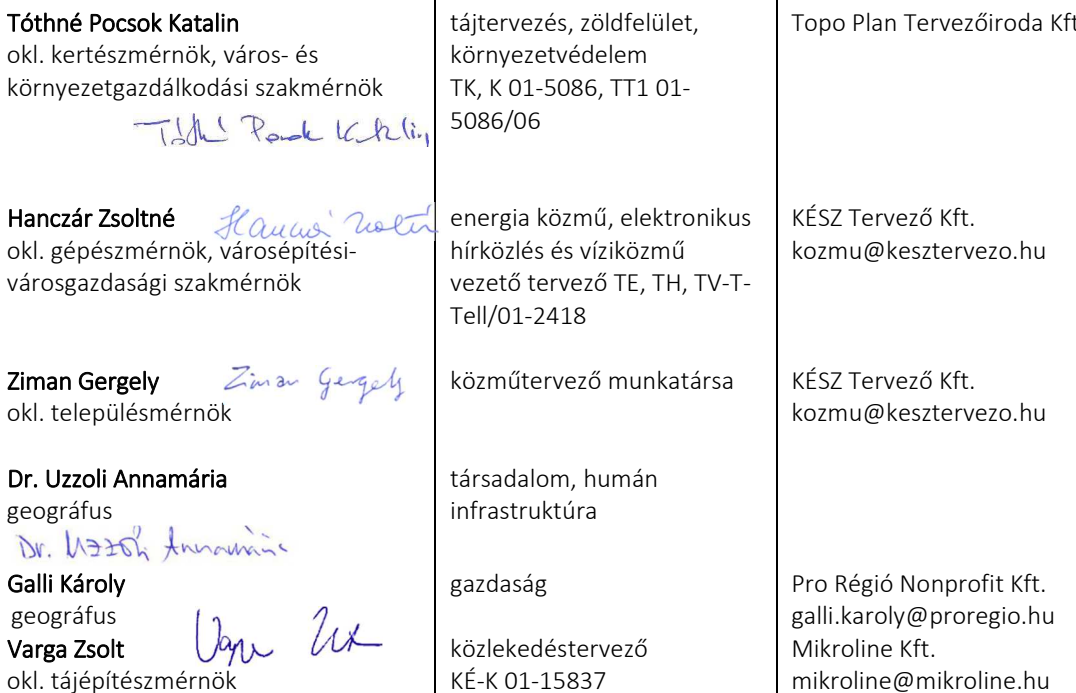 Tóthné Pocsok Katalin
okl. kertészmérnök, város- és
környezetgazdálkodási szakmérnök
Tóthné Pocsok Katalin
tájtervezés, zöldfelület,
környezetvédelem
TK, K 01-5086, TT1 01-
5086/06
Topo Plan Tervezőiroda Kft
Hanczár Zsoltné
Hanczár Zsoltné
okl. gépészmérnök, városépítési-
városgazdasági szakmérnök
energia közmű, elektronikus
hírközlés és víziközmű
vezető tervező TE, TH, TV-T-
Tell/01-2418
KÉSZ Tervező Kft.
kozmu@kesztervezo.hu
Ziman Gergely
Ziman Gergely
okl. településmérnök
közműtervező munkatársa
KÉSZ Tervező Kft.
kozmu@kesztervezo.hu
Dr. Uzzoli Annamária
geográfus
Dr. Uzzoli Annamária
társadalom, humán
infrastruktúra
Galli Károly
geográfus
gazdaság
Pro Régió Nonprofit Kft.
galli.karoly@proregio.hu
Varga Zsolt
okl. tájépítészmérnök
Varga Zsolt
közlekedéstervező
KÉ-K 01-15837
Mikroline Kft.
mikroline@mikroline.hu